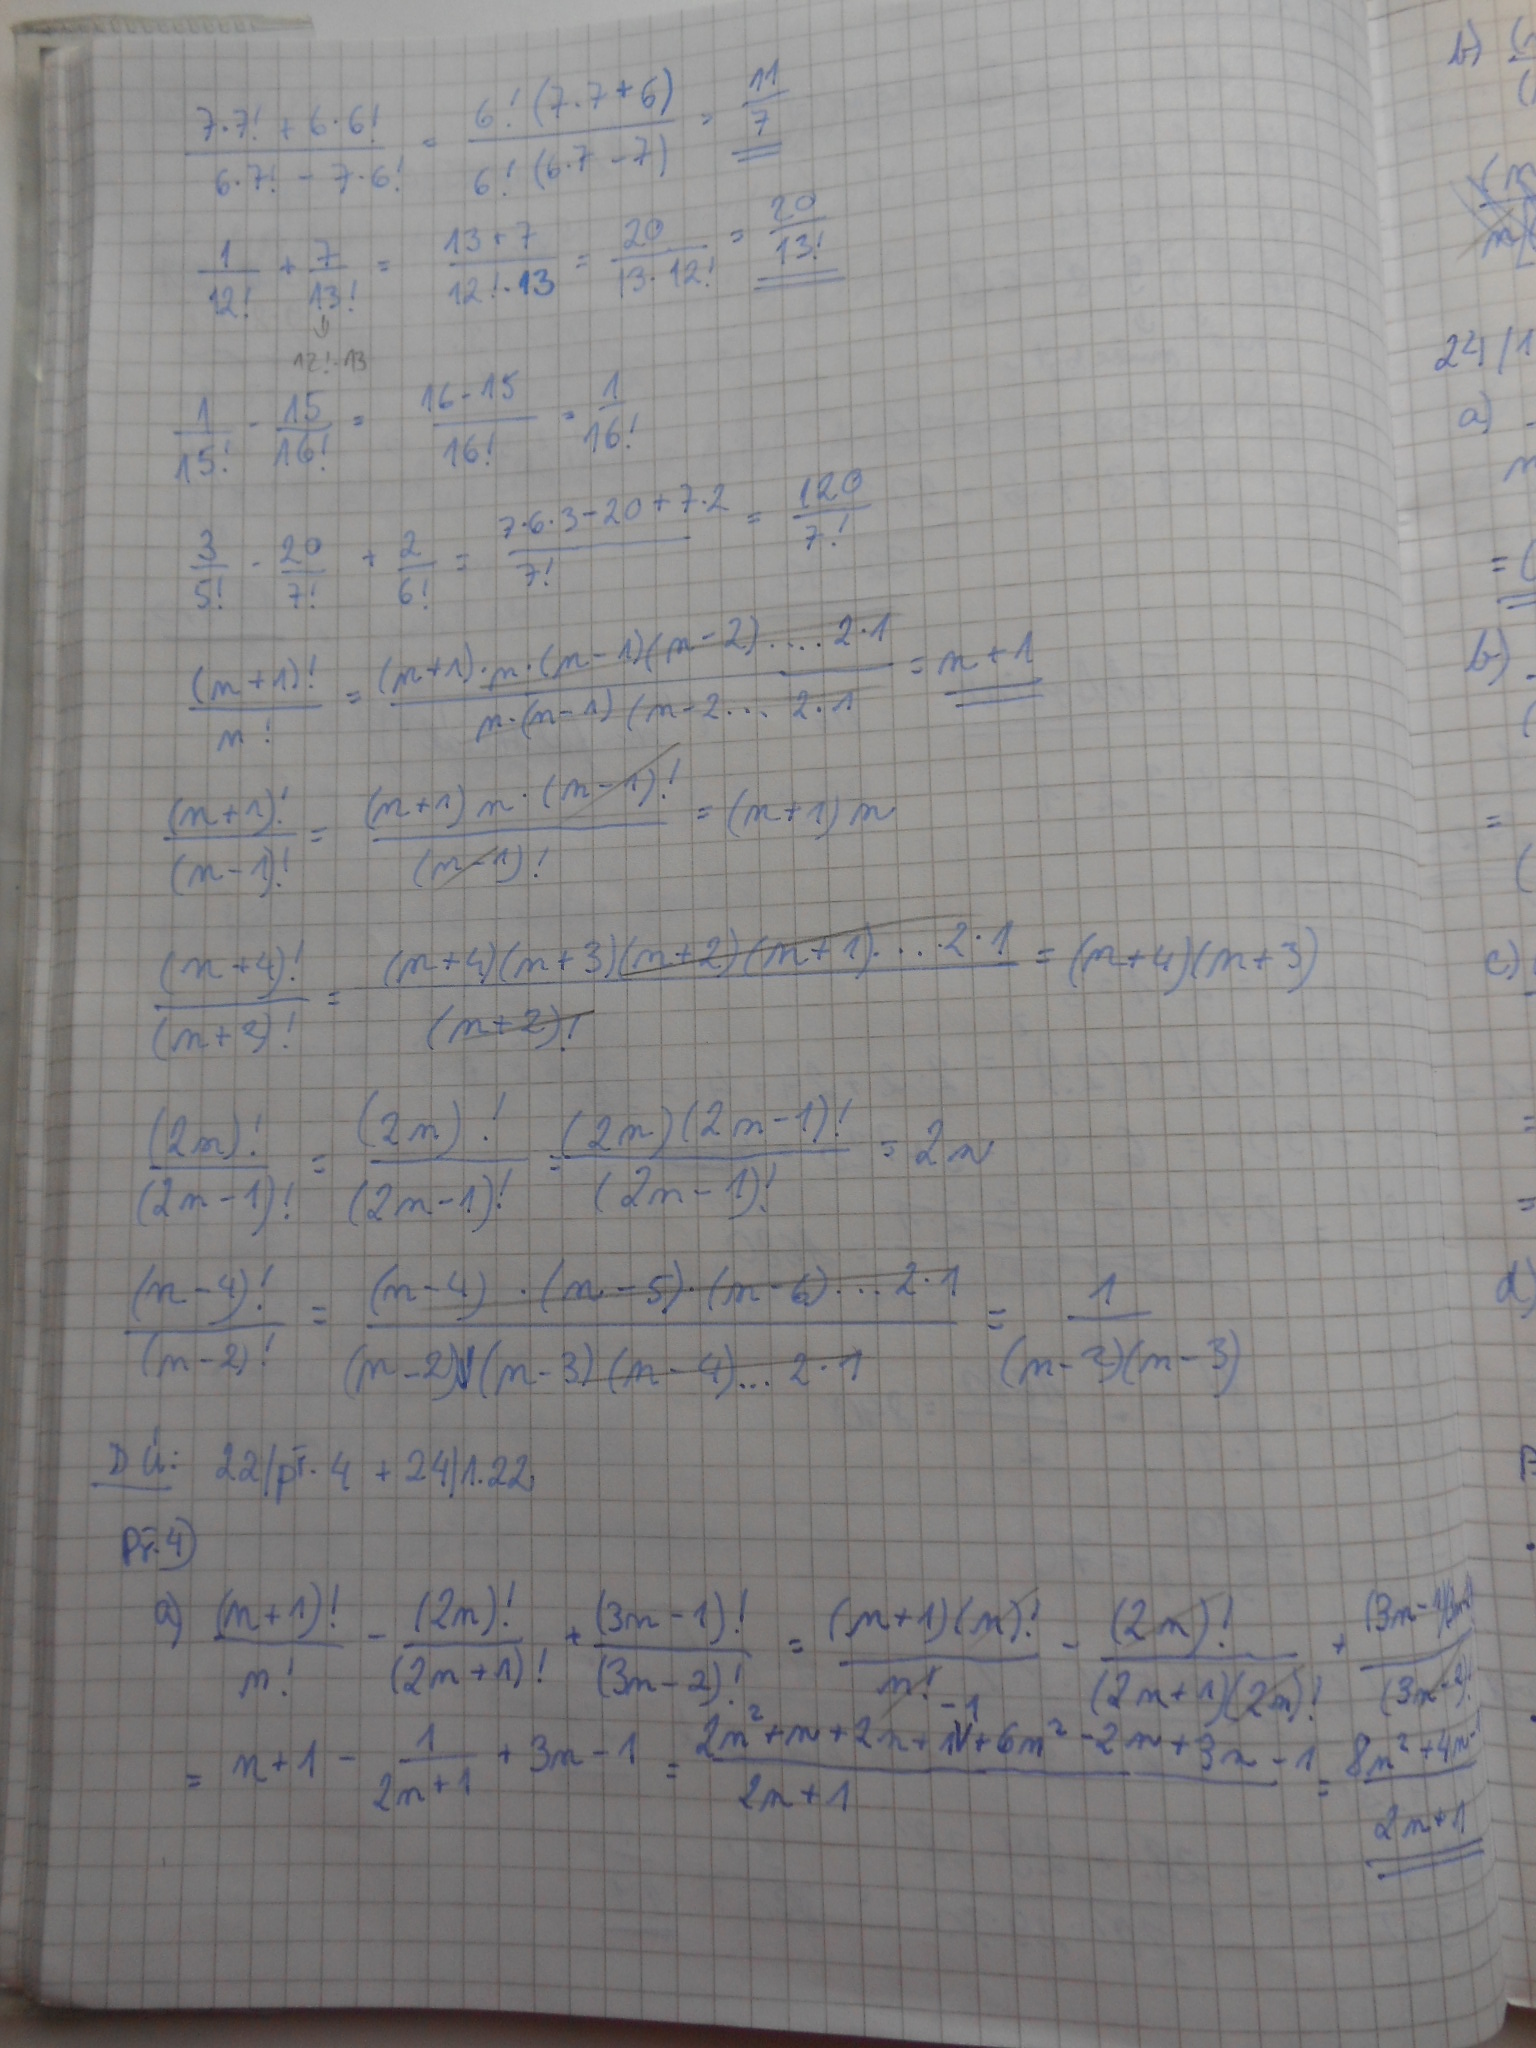 (7·7! + 6·6!)/(6·7! - 7·6!) = 6!(7·7+6)/6!(6·7-7) = 11/7
1/12! + 7/13! = (13+7)/(12!·13) = 20/(13·12!) = 20/13!
12!·13
1/15! - 15/16! = (16-15)/16! = 1/16!
3/5! - 20/7! + 2/6! = (7·6·3-20+7·2)/7! = 120/7!
(n+1)!/n! = (n+1)·n·(n-1)(n-2)....2·1/n·(n-1)(n-2... 2·1 = n+1
(n+1)!/(n-1)! = (n+1)n·(n-1)!/(n-1)! = (n+1)n
(n+4)!/(n+2)! = (n+4)(n+3)(n+2)(n+1)...2·1/(n+2)! = (n+4)(n+3)
(2n)!/(2n-1)! = (2n)!/(2n-1)! = (2n)(2n-1)!/(2n-1)! = 2n
(n-4)!/(n-2)! = (n-4)·(n-5)·(n-6)...2·1/(n-2)(n-3)(n-4)...2·1 = 1/(n-2)(n-3)
DÚ: 22/př. 4 + 24/1.22
Př.4)
a) (n+1)!/n! - (2n)!/(2n+1)! + (3n-1)!/(3n-2)! = (n+1)(n)!/n! - (2n)!/(2n+1)(2n)! +
= n+1 - 1/(2n+1) + 3n-1 = (2n²+n+2n+1-1+6n²-2n+3n-1)/(2n+1) = (8n²+4n-1)/(2n+1)
b)
24/1
a)
b)
c)
d)